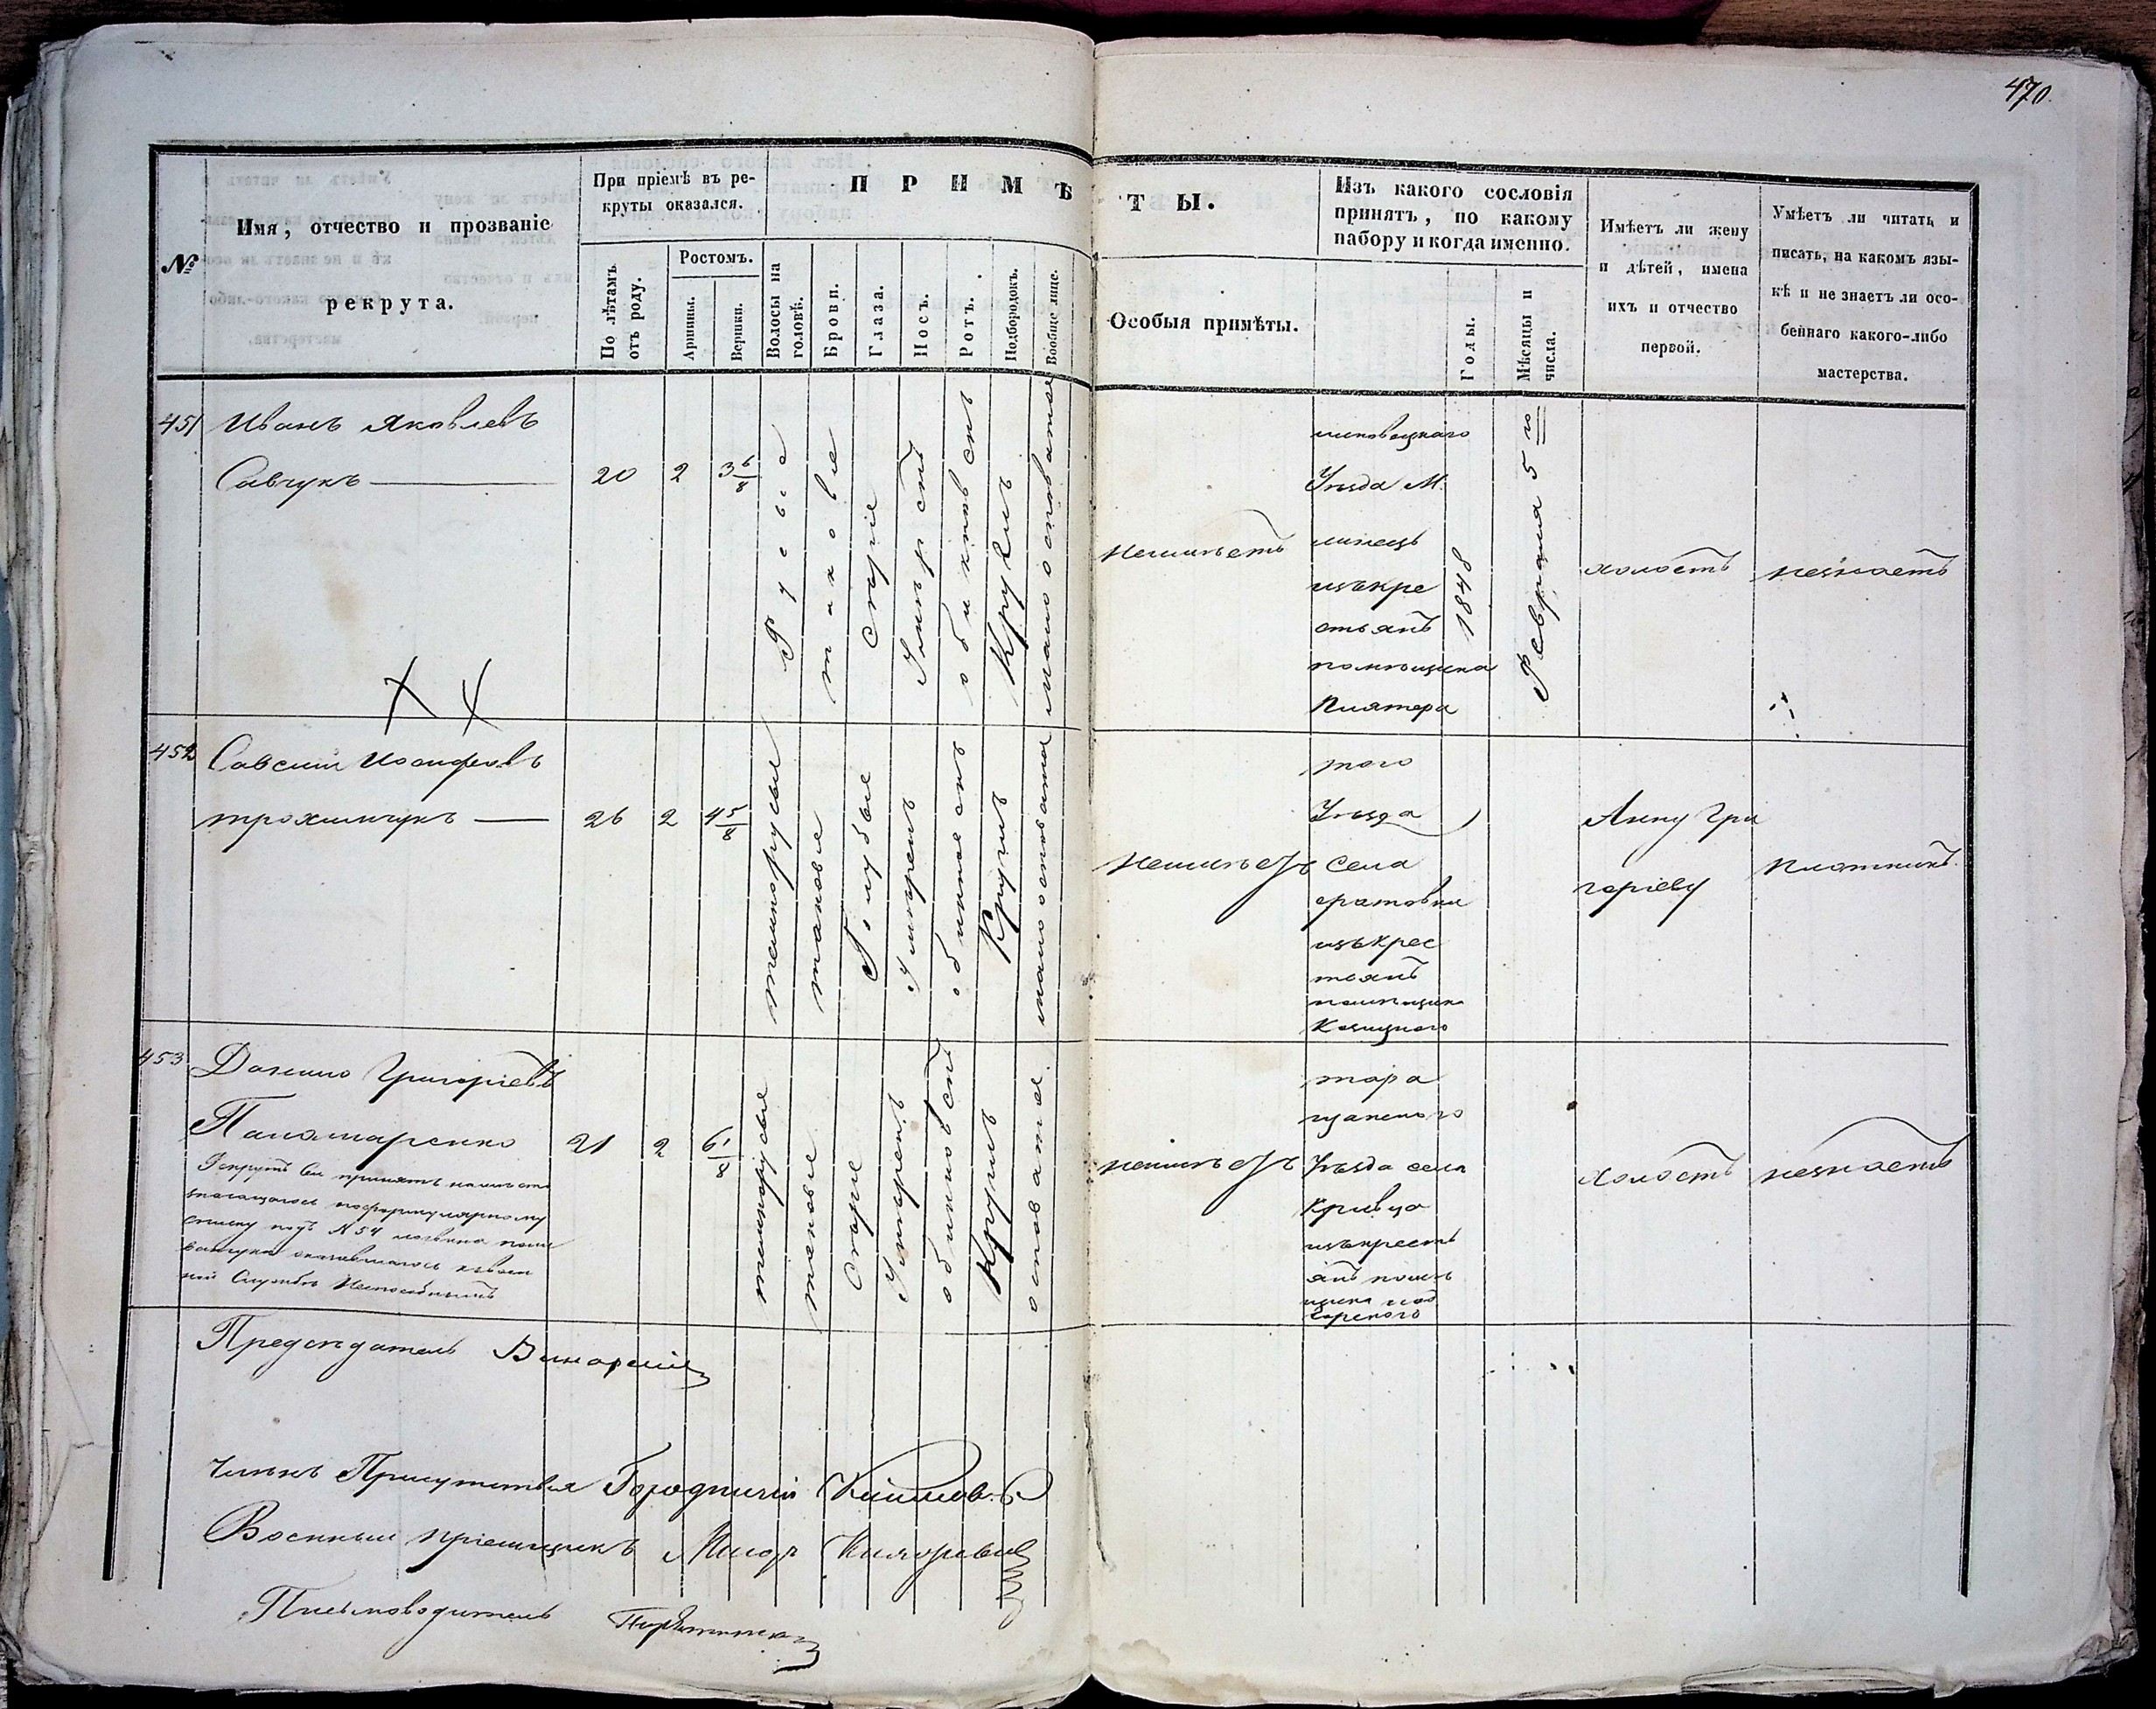 470.
№
Имя, отчество и прозваніе
рекрута.
При пріемѣ въ ре-
круты оказался.
По лѣтамъ
отъ роду.
Ростомъ.
Аршины.
Вершки.
ПРИМѢТЫ.
Волосы на
головѣ.
Брови.
Глаза.
Носъ.
Ротъ.
Подбородокъ.
Вообще лице.
Особыя примѣты.
Изъ какого сословія
принятъ, по какому
набору и когда именно.
Годы.
Мѣсяцы и
числа.
Имѣетъ ли жену
и дѣтей, имена
ихъ и отчество
первой.
Умѣетъ ли читать и
писать, на какомъ язы-
кѣ и не знаетъ ли осо-
беннаго какого-либо
мастерства.
451
Иванъ Яковлевъ
Савчукъ
20
2
3 6/8
Русые
таковые
Сѣрые
Умѣрен
обыкновен
Круглъ
мало осповатое
неимѣетъ
Уѣзда М.
изъ кре
стьянъ
помѣщика
Плятера
1848
Февраля 5 го
холостъ
незнаетъ
452
Савелій Иосифовъ
трохимчукъ
26
2
4 5/8
темнорусые
таковые
Голубые
Умѣренъ
Круглъ
мало осповато
неимѣетъ
того
Уѣзда
Села
изъ крес
тьянъ
помѣщика
Анну Гри
горіеву
Плотникъ
453
Данило Григоріевъ
Панамаренко
Рекрутъ сей принятъ на мѣсто
значащагося по формулярному
списку подъ № 54
оказавшагося к воен
ной Службѣ Неспособнымъ
21
2
6 1/8
темнорусые
таковые
Сѣрые
Умѣренъ
обыкновен
Круглъ
осповатое
неимѣетъ
тара
щанского
Уѣзда села
Кривца
изъ крестъ
янъ помѣ
щика
холостъ
незнаетъ
Предсѣдатель
Членъ Присутствія Городничій
Военный пріемщикъ Маіоръ
Письмоводитель